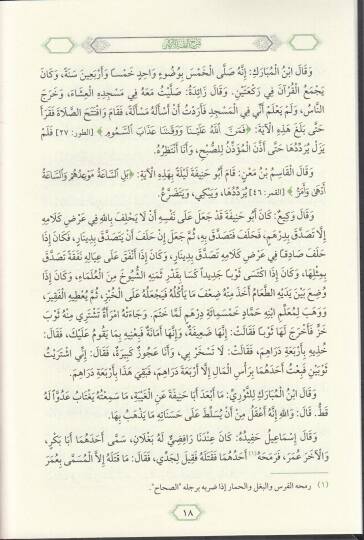 وَقَالَ ابْنُ الْمُبَارَكِ: إِنَّهُ صَلَّى الْخَمْسَ بِوُضُوءٍ وَاحِدٍ خَمْساً وَأَرْبَعِينَ سَنَةً، وَكَانَ
يَجْمَعُ الْقُرْآنَ فِي رَكْعَتَيْنِ. وَقَالَ زَائِدَةُ: صَلَّيْتُ مَعَهُ فِي مَسْجِدِهِ الْعِشَاءَ، وَخَرَجَ
النَّاسُ، وَلَمْ يَعْلَمْ أَنِّي فِي الْمَسْجِدِ فَأَرَدْتُ أَنْ أَسْأَلَهُ مَسْأَلَةً، فَقَامَ وَافْتَتَحَ الصَّلَاةَ فَقَرَأَ
حَتَّى بَلَغَ هَذِهِ الْآيَةَ: ﴿فَمَنَّ ٱللَّهُ عَلَيْنَا وَوَقَىٰنَا عَذَابَ ٱلسَّمُومِ﴾ [الطور: ٢٧] فَلَمْ
يَزَلْ يُرَدِّدُهَا حَتَّى أَذَّنَ الْمُؤَذِّنُ لِلصُّبْحِ، وَأَنَا أَنْتَظِرُهُ.
وَقَالَ الْقَاسِمُ بْنُ مَعْنٍ: قَامَ أَبُو حَنِيفَةَ لَيْلَةً بِهَذِهِ الْآيَةِ: ﴿بَلِ ٱلسَّاعَةُ مَوْعِدُهُمْ وَٱلسَّاعَةُ
أَدْهَىٰ وَأَمَرُّ﴾ [القمر: ٤٦] يُرَدِّدُهَا، وَيَبْكِي، وَيَتَضَرَّعُ.
وَقَالَ وَكِيعٌ: كَانَ أَبُو حَنِيفَةَ قَدْ جَعَلَ عَلَى نَفْسِهِ أَنْ لَا يَحْلِفَ بِاللَّهِ فِي عَرْضِ كَلَامِهِ
إِلَّا تَصَدَّقَ بِدِرْهَمٍ، فَحَلَفَ فَتَصَدَّقَ بِهِ، ثُمَّ جَعَلَ إِنْ حَلَفَ أَنْ يَتَصَدَّقَ بِدِينَارٍ، فَكَانَ إِذَا
حَلَفَ صَادِقاً فِي عَرْضِ كَلَامِهِ تَصَدَّقَ بِدِينَارٍ، وَكَانَ إِذَا أَنْفَقَ عَلَى عِيَالِهِ نَفَقَةً تَصَدَّقَ
بِمِثْلِهَا، وَكَانَ إِذَا اكْتَسَى ثَوْباً جَدِيداً كَسَا بِقَدْرِ ثَمَنِهِ الشُّيُوخَ مِنَ الْعُلَمَاءِ، وَكَانَ إِذَا
وُضِعَ بَيْنَ يَدَيْهِ الطَّعَامُ أَخَذَ مِنْهُ ضِعْفَ مَا يَأْكُلُهُ فَيَجْعَلُهُ عَلَى الْخُبْزِ، ثُمَّ يُعْطِيهِ الْفَقِيرَ،
وَوَهَبَ لِمُعَلِّمِ ابْنِهِ حَمَّادٍ خَمْسَمِائَةِ دِرْهَمٍ لَمَّا خَتَمَ. وَجَاءَتْهُ امْرَأَةٌ تَشْتَرِي مِنْهُ ثَوْبَ
خَزٍّ فَأَخْرَجَ لَهَا ثَوْباً فَقَالَتْ: إِنَّهَا ضَعِيفَةٌ، وَإِنَّهَا أَمَانَةٌ فَبِعْنِيهِ بِمَا يَقُومُ عَلَيْكَ، فَقَالَ:
خُذِيهِ بِأَرْبَعَةِ دَرَاهِمَ، فَقَالَتْ: لَا تَسْخَرْ بِي، وَأَنَا عَجُوزٌ كَبِيرَةٌ، فَقَالَ: إِنِّي اشْتَرَيْتُ
ثَوْبَيْنِ فَبِعْتُ أَحَدَهُمَا بِرَأْسِ الْمَالِ إِلَّا أَرْبَعَةَ دَرَاهِمَ، فَبَقِيَ هَذَا بِأَرْبَعَةِ دَرَاهِمَ.
وَقَالَ ابْنُ الْمُبَارَكِ لِلثَّوْرِيِّ: مَا أَبْعَدَ أَبَا حَنِيفَةَ عَنِ الْغِيبَةِ، مَا سَمِعْتُهُ يَغْتَابُ عَدُوّاً لَهُ
قَطُّ. قَالَ: وَاللَّهِ إِنَّهُ أَعْقَلُ مِنْ أَنْ يُسَلِّطَ عَلَى حَسَنَاتِهِ مَا يَذْهَبُ بِهَا.
وَقَالَ إِسْمَاعِيلُ حَفِيدُهُ: كَانَ عِنْدَنَا رَافِضِيٌّ لَهُ بَغْلَانِ، سَمَّى أَحَدَهُمَا أَبَا بَكْرٍ،
وَالْآخَرَ عُمَرَ، فَرَمَحَهُ(١) أَحَدُهُمَا فَقَتَلَهُ فَقِيلَ لِجَدِّي، فَقَالَ: مَا قَتَلَهُ إِلَّا الْمُسَمَّى بِعُمَرَ
(١) رمحه الفرس والبغل والحمار إذا ضربه برجله "الصحاح".
١٨